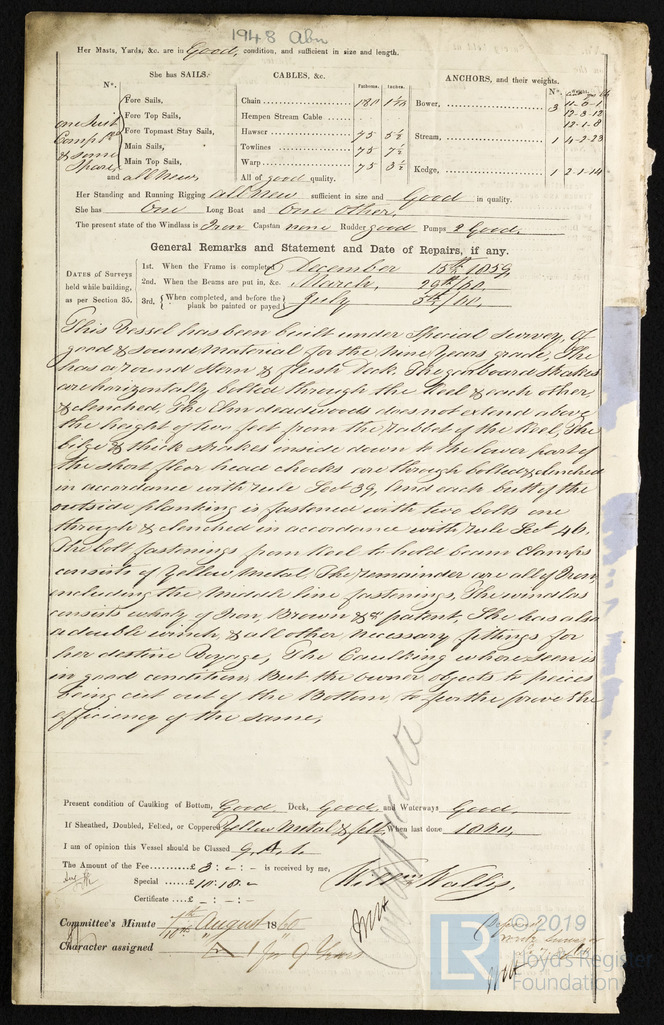 1948 Abn
Her Masts, Yards, &c. are in Good, condition, and sufficient in size and length.
She has SAILS.
CABLES, &c.
ANCHORS, and their weights.
No.
Fathoms. Inches.
No.
one Suit
Comp
& some
Spare
Fore Sails,
Fore Top Sails,
Fore Topmast Stay Sails,
Main Sails,
Main Top Sails,
and all new,
Chain 180
Hempen Stream Cable
Hawser 75 5½
Towlines 75 7½
Warp 75 3½
All of good quality.
Bower, 3 11-0-1
12-3-12
12-1-8
Stream, 1 4-2-23
Kedge, 1 2-1-14
Her Standing and Running Rigging all new sufficient in size and Good in quality.
She has One Long Boat and One other,
The present state of the Windlass is Iron Capstan none Rudder good Pumps 2 Good,
General Remarks and Statement and Date of Repairs, if any.
DATES of Surveys
held while building,
as per Section 35.
1st. When the Frame is completed December 15th 1859
2nd. When the Beams are put in, &c. March, 29th/60.
3rd. { When completed, and before the
plank be painted or payed } July 5th/60.
This Vessel has been built under Special Survey, Of
good & sound Material for the Nine Years grade, She
has a round Stern & flush Deck. The garboard strakes
are horizontally bolted through the Keel & each other
& clenched, The Elm deadwoods does not extend above
the height of two feet from the rabbet of the Keel, The
bilge & thick strakes inside down to the lower part of
the short floor head chocks are through bolted & clenched
in accordance with rule Sect 39, and each butt of the
outside planking is fastened with two bolts one
through & clenched in accordance with rule Sect 46.
The bolt fastenings from Keel to hold beam clamps
consists of Yellow Metal, The remainder are all of Iron
including the Middle line fastenings, The windlass
consists wholy of Iron, Brown & Co patent, She has also
a double winch, & all other necessary fittings for
her destine Voyage, The Caulking where seen is
in good condition, But the owner objects to pieces
being cut out of the Bottom, to further prove the
efficiency of the same,
Present condition of Caulking of Bottom, Good. Deck, Good, and Waterways Good.
If Sheathed, Doubled, Felted, or Coppered Yellow Metal & felt, When last done 1860.
I am of opinion this Vessel should be Classed 9. A. 1.
The Amount of the Fee £ 3 : - : - is received by me,
Special £ 10 : 10 : -
Certificate £ - : - : -
William Wallis,
Committee's Minute 7th August 1860
10th
Character assigned A 1 for 9 Years
© 2019
LR
Lloyd's Register
Foundation